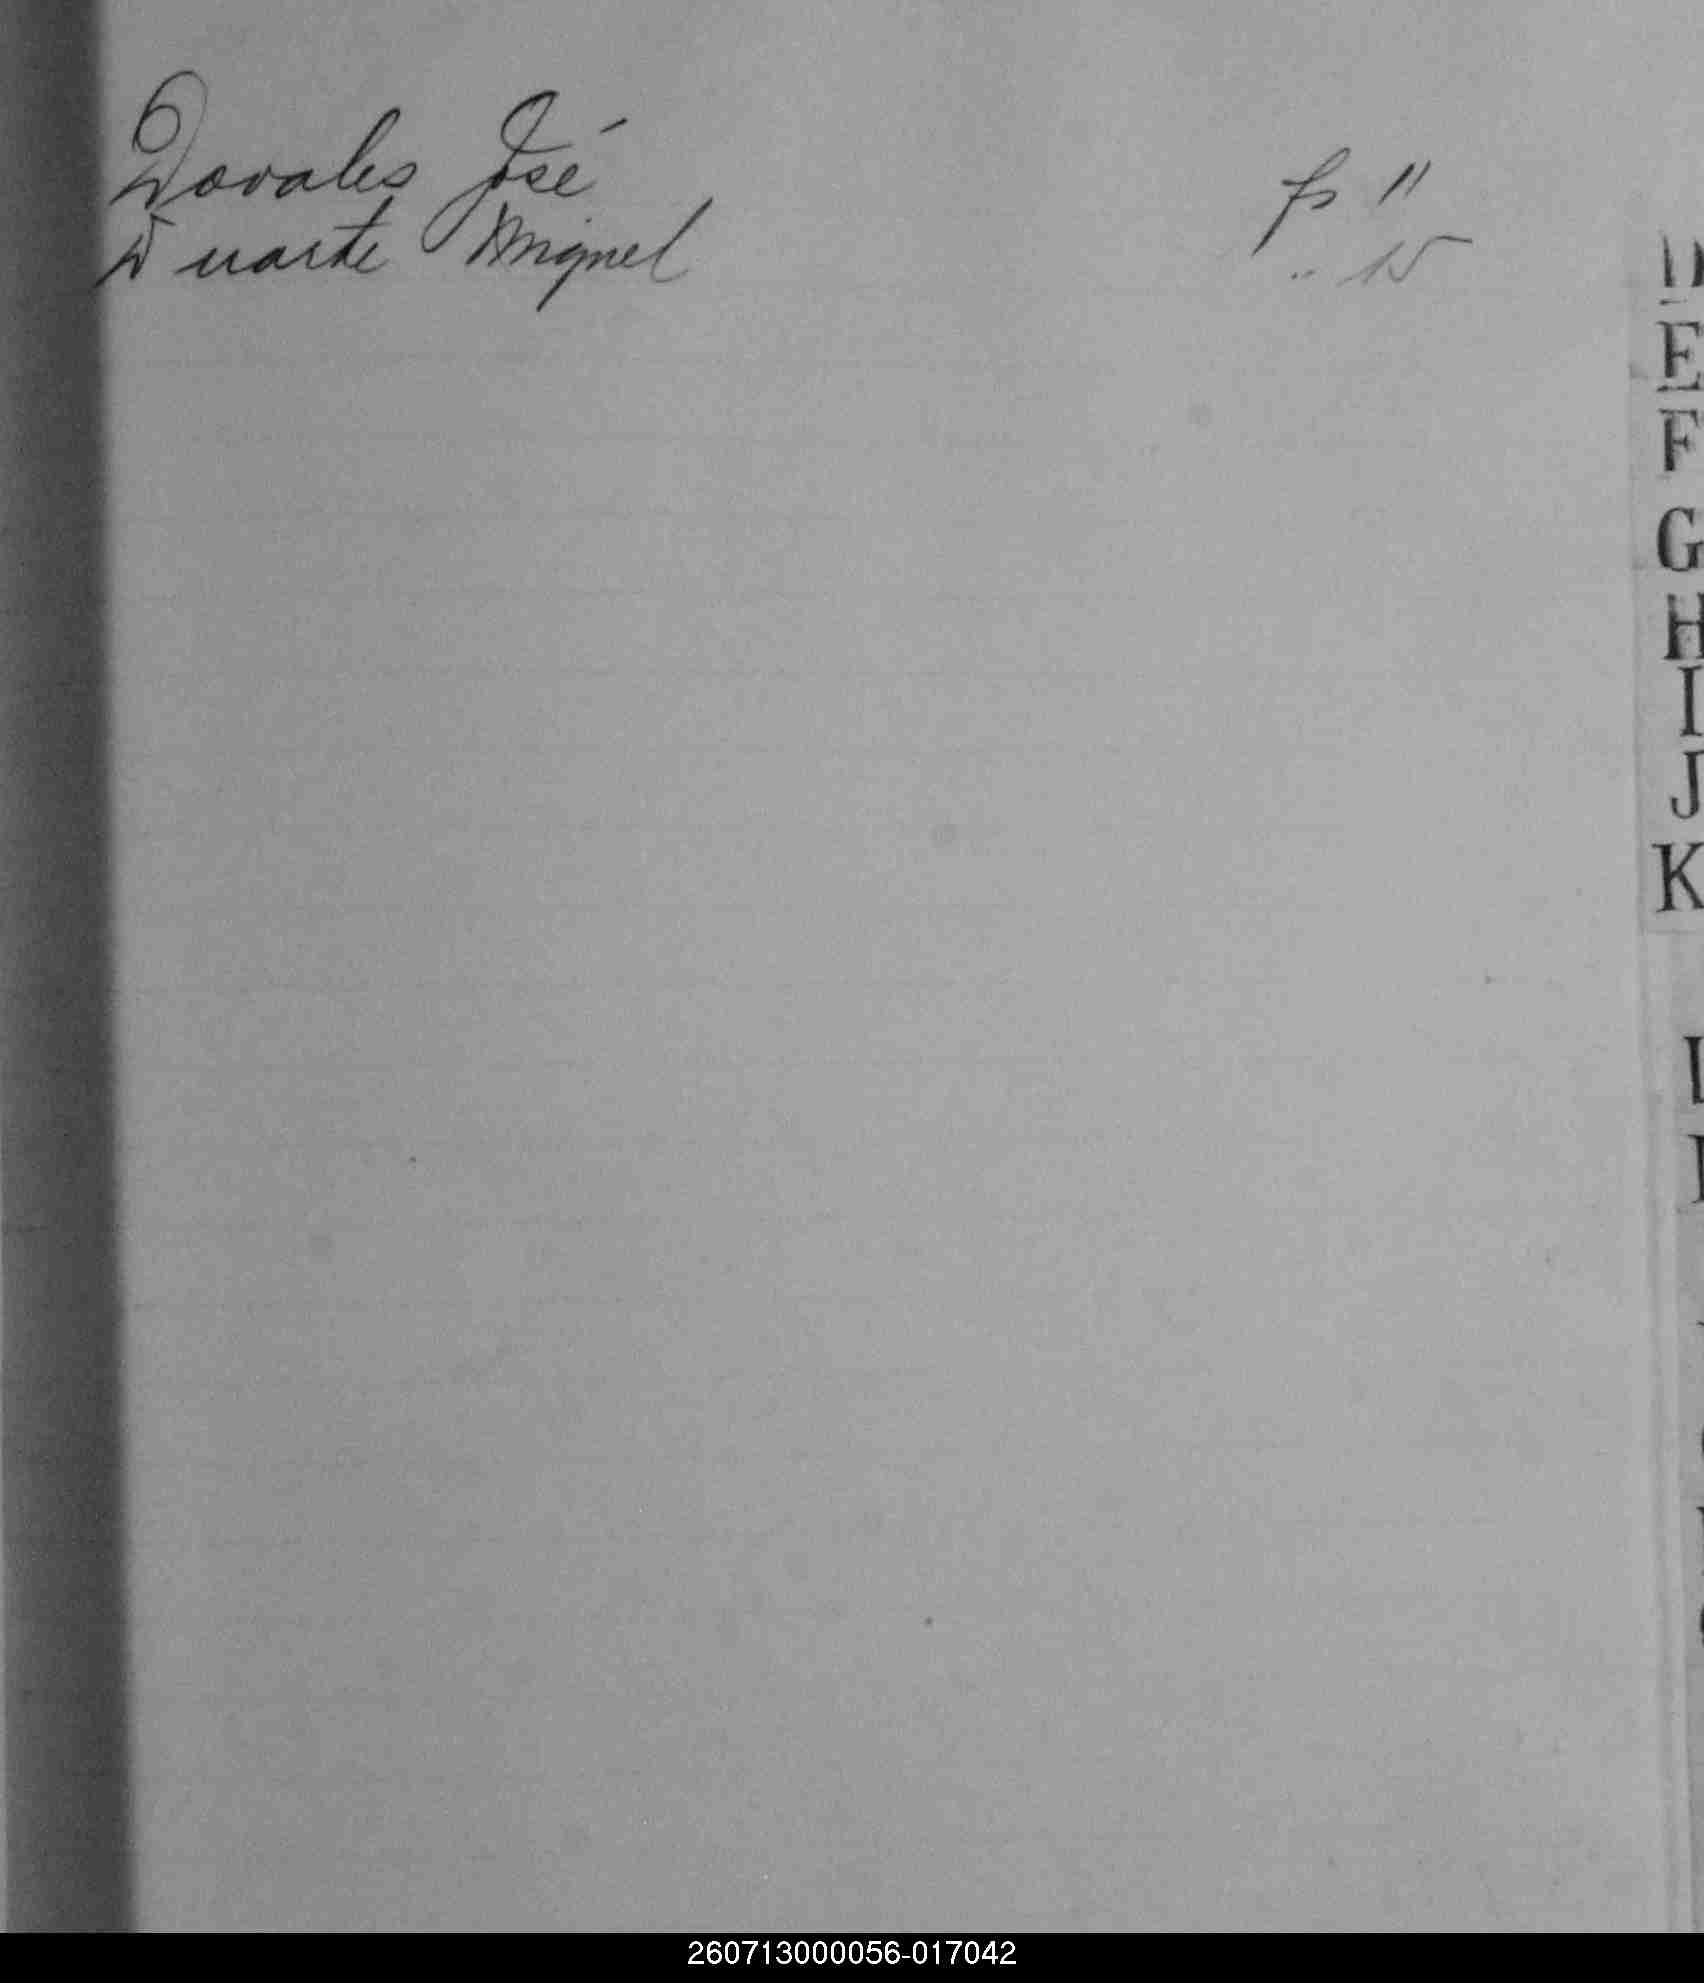 Dovales José fs 11
Duarte Miguel .. 15
D
E
F
G
H
I
J
K
L
260713000056-017042